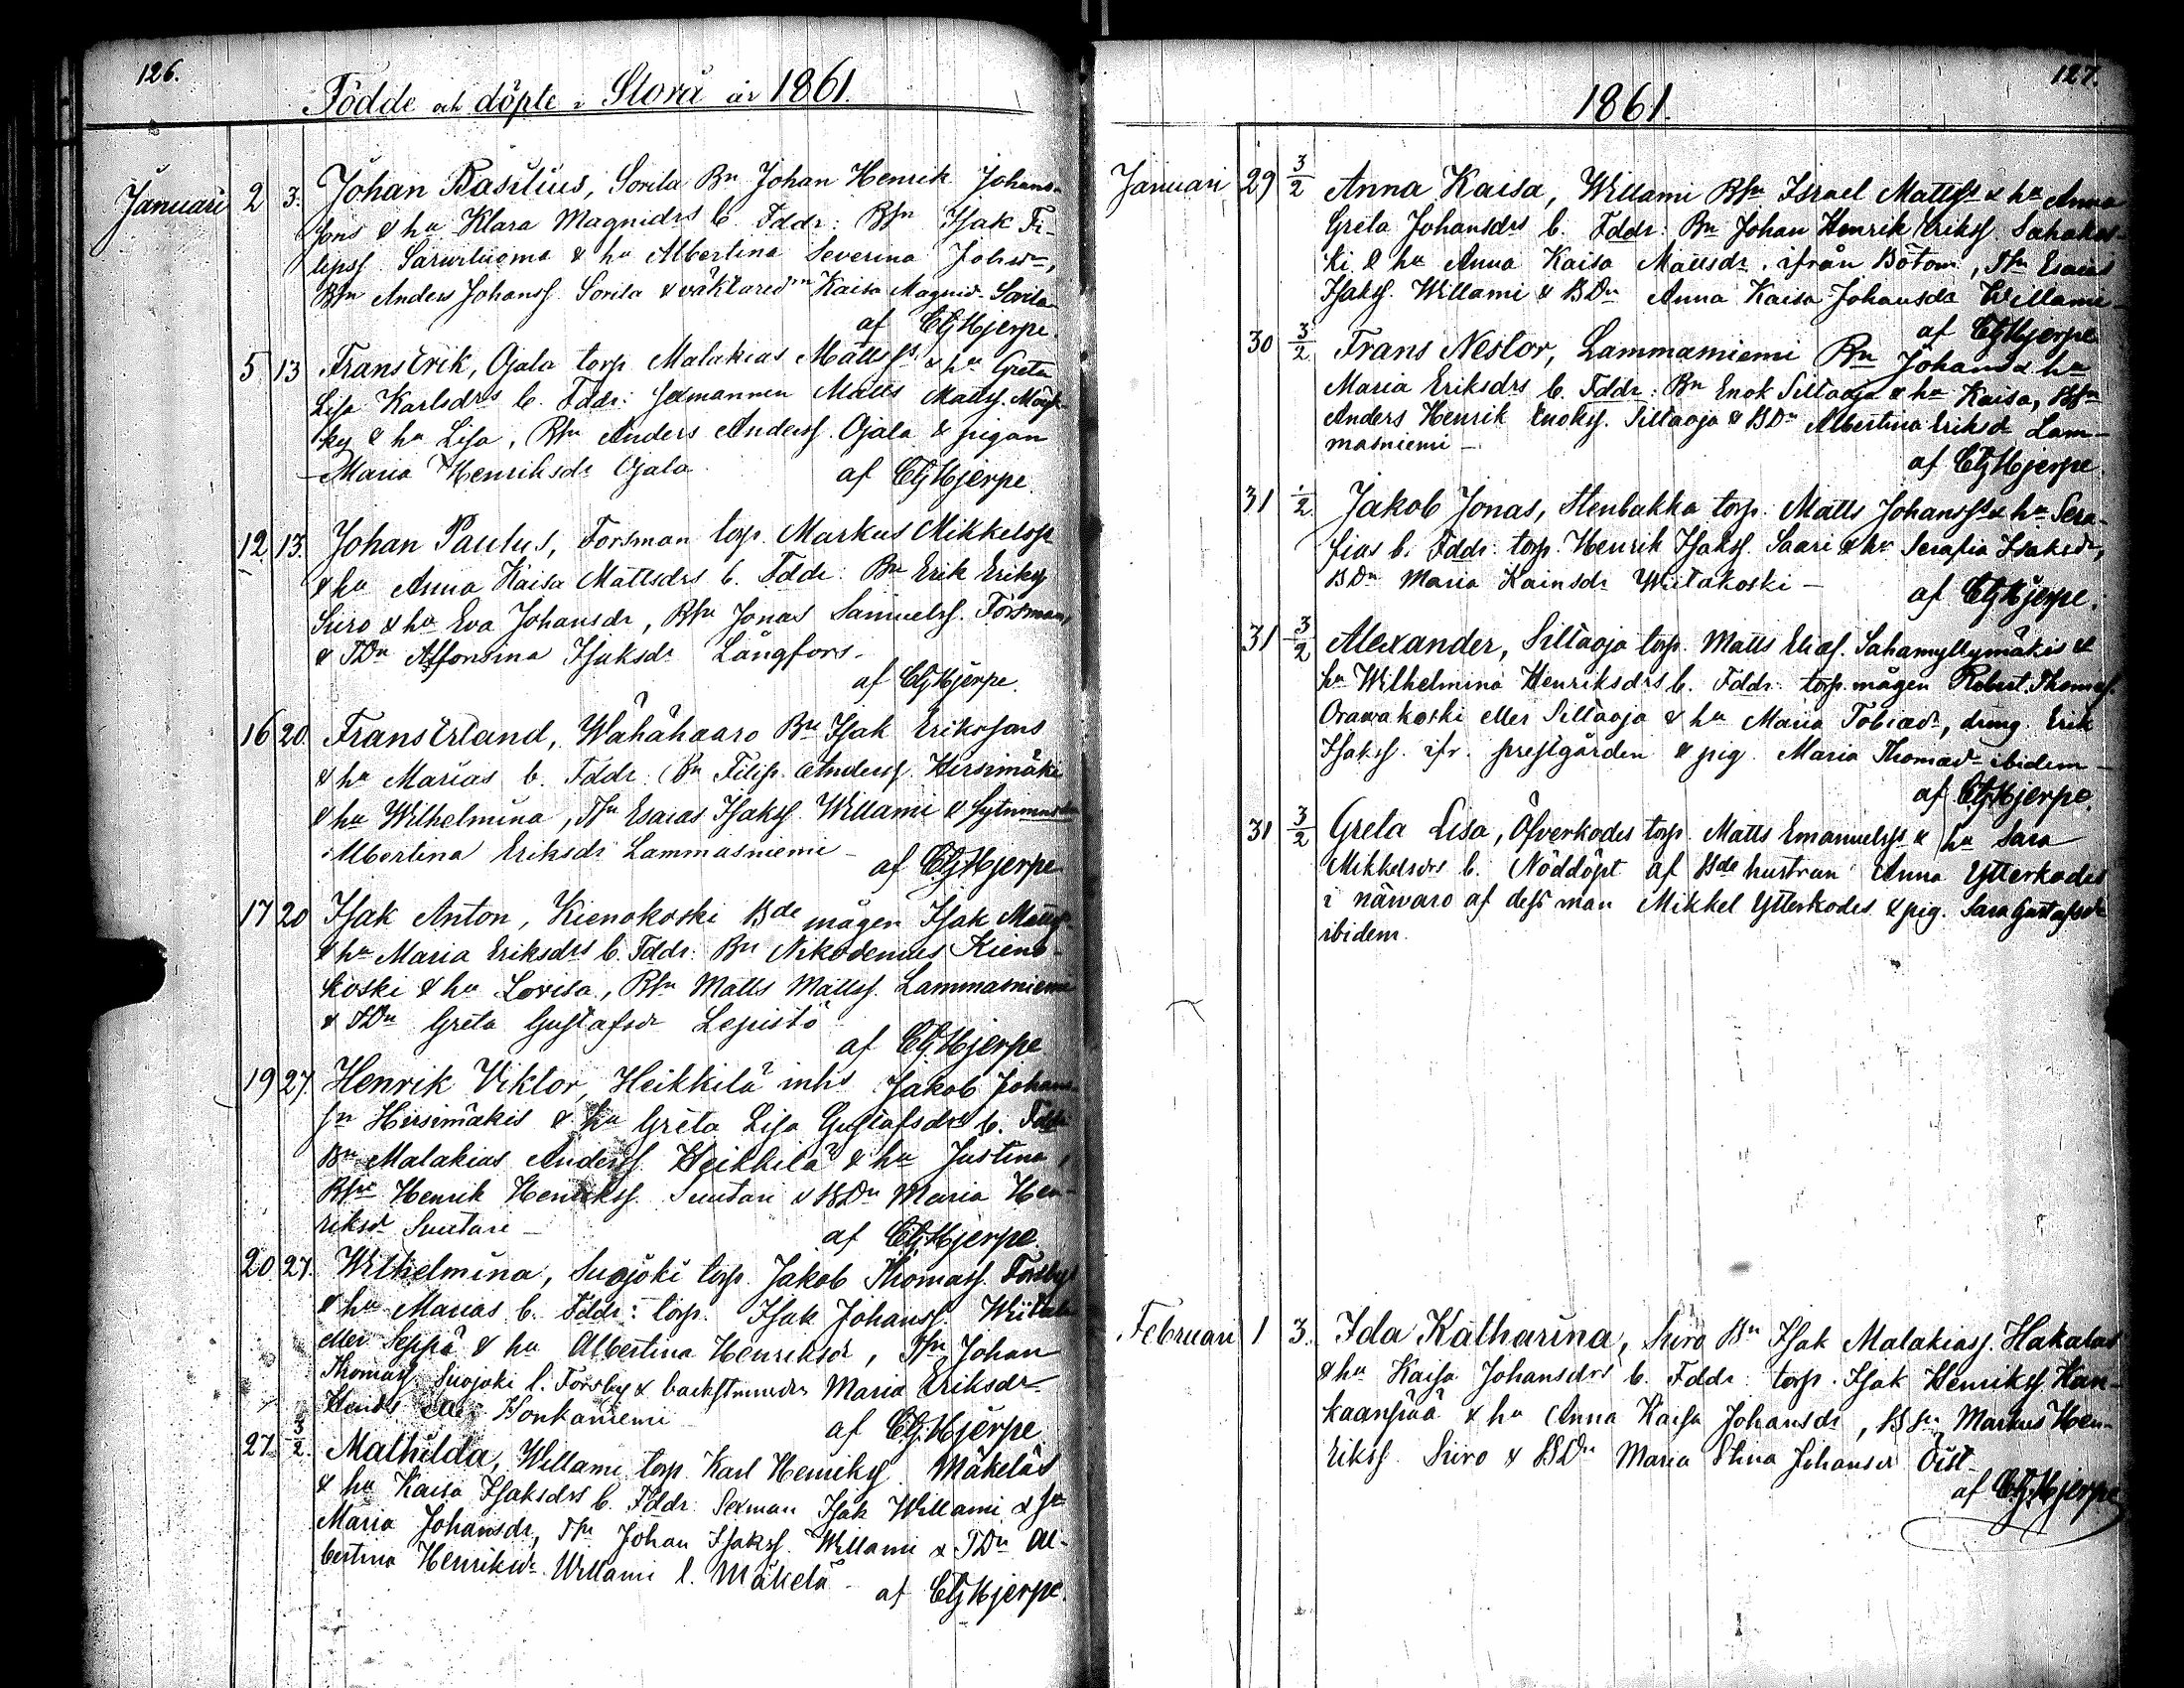 126.
Födde och döpte i Storå år 1861.
Januari 2 3. Johan Basilius, Sorila Bn Johan Henrik Johans-
sons & hu Klara Magnidrs b. Fddr: Bsn Isak Fi-
lipss. Sarviluoma & hu Albertina Severina Johsdr,
Bsn Anders Johanss. Sorila & väktaredrn Kaisa Magnidr Sorila
af CGHjerpe.
5 13 Frans Erik, Ojala torp. Malakias Mattss & hu Greta
Lisa Karlsdrs b. Fddr: sexmannen Matts Mattss.
& hu Lisa, Bsn Anders Anderss. Ojala & pigan
Maria Henriksdr Ojala af CGHjerpe.
12 13. Johan Paulus, Forsman torp. Markus Mikkelss
& hu Anna Kaisa Mattsdrs b. Fddr: Bn Erik Erikss
Siiro & hu Eva Johansdr, Bsn Jonas Samuelss. Forsman,
& TDn Alfonsina Isaksdr Långfors.
af CGHjerpe.
16 20. Frans Erland, Wähähaaro Bn Isak Eriksons
& hu Marias b. Fddr: Bn Filip Anderss. Hirsimäki
& hu Wilhelmina, Tsn Esaias Isakss. Willami &
Albertina Eriksdr Lammasniemi -
af CGHjerpe
17 20 Isak Anton, Kienokoski Bde mågen Isak Mattss.
& hu Maria Eriksdrs b. Fddr: Bn Nikodemus Kieno-
koski & hu Lovisa, Bsn Matts Mattss. Lammasniemi
& TDn Greta Gustafsdr Lepistö
af CGHjerpe
19 27. Henrik Viktor, Heikkilä inhs Jakob Johans-
sn Hirsimäkis & hu Greta Lisa Gustafsdrs b. Fddr
Bn Malakias Anderss. Heikkilä & hu Justina,
Bsn Henrik Henrikss. Suutari & BDn Maria Hen-
riksdr Suutari -
af CGHjerpe.
20 27. Wilhelmina, Suojoki torp. Jakob Thomass. Forsby
& hu Marias b. Fddr: torp. Isak Johanss.
eller Seppä & hu Albertina Henriksdr, Tsn Johan
Thomass. Suojoki l. Forsby & backstmdr Maria Eriksdr
Honkaniemi
af CGHjerpe
27. 3/2. Mathilda, Willami torp. Karl Henrikss. Mäkeläs
& hu Kaisa Isaksdrs b. Fddr: Sexman Isak Willami & hu
Maria Johansdr, Tsn Johan Isakss. Willami & TDn Al-
bertina Henriksdr Willami l. Mäkelä -
af CGHjerpe.
127.
1861.
Januari 29 3/2 Anna Kaisa, Willami Bsn Israel Mattss & hu Anna
Greta Johansdrs b. Fddr: Bn Johan Henrik Erikss. Sahakos-
ki & hu Anna Kaisa Mattsdr, ifrån Bötom, Tsn Esaias
Isakss. Willami & BDn Anna Kaisa Johansdr Willami -
af CGHjerpe
30 3/2 Frans Nestor, Lammasniemi Bn Johans & hu
Maria Eriksdrs b. Fddr: Bn Enok Siltaoja & hu Kaisa, Bsn
Anders Henrik Enokss. Siltaoja & BDn Albertina Eriksdr Lam-
masniemi -
af CGHjerpe
31 /2 Jakob Jonas, Stenbakka torp. Matts Johanss & hu Sera-
fias b. Fddr: torp. Henrik Isakss. Saari & hu Serafia Isaksdr,
BDn Maria Kainsdr Wiitakoski -
af CGHjerpe.
31 3/2 Alexander, Siltaoja torp. Matts Eliass. Sahamyllymäkis &
hu Wilhelmina Henriksdrs b. Fddr: torp. mågen Robert Thomass.
Orawakoski eller Siltaoja & hu Maria Tobiadr, dräng. Erik
Isakss. ifr. prestgården & pig. Maria Thomadr ibidem -
af CGHjerpe.
31 3/2 Greta Lisa, Öfverkodes torp. Matts Emanuelss & hu Sara
Mikkelsdrs b. Nöddöpt af Bde hustrun Anna Ytterkodes
i närvaro af dess man Mikkel Ytterkodes & pig. Sara Gustafsdr
ibidem.
Februari 1 3. Ida Katharina, Siiro Bn Isak Malakiass. Hakalas
& hu Kaisa Johansdrs b. Fddr: torp. Isak Henrikss. Kan-
kaanpää & hu Anna Kaisa Johansdr, BSn Markus Hen-
rikss. Siiro & BDn Maria Stina Johansdr Öist -
af CGHjerpe